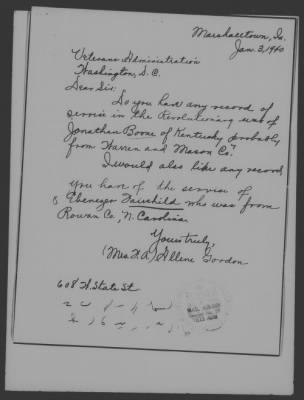 Marshalltown, Ia.
Jan. 3, 1940
Veterans Administration
Washington, D.C.
Dear Sir:
Do you have any record of
service in the Revolutionary war of
Jonathan Boone of Kentucky probably
from Warren and Mason Co.
I would also like any record
you have of the service of
Ebenezer Fairchild who was from
Rowan Co., N. Carolina.
Yours truly,
(Mrs. F.A.) Allene Gordon
608 N. State St